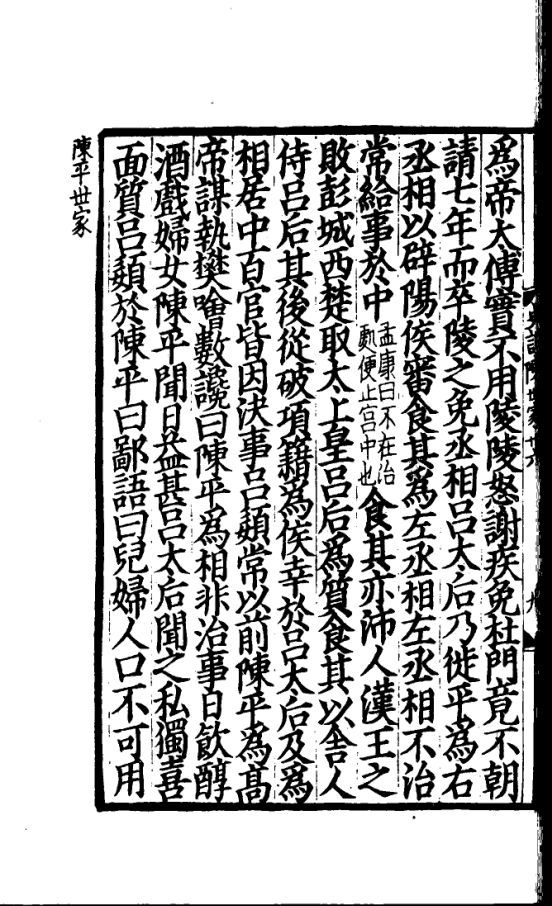 爲帝太傅實不用陵陵怒謝疾免杜門竟不朝
請七年而卒陵之免丞相吕太后乃徙平爲右
丞相以辟陽侯審食其爲左丞相左丞相不治
常給事於中孟康曰不在治
處使止宫中也食其亦沛人漢王之
敗彭城西楚取太上皇吕后爲質食其以舍人
侍吕后其後從破項籍爲侯幸於吕太后及爲
相居中百官皆因決事吕嬃常以前陳平爲高
帝謀執樊噲數讒曰陳平爲相非治事日飲醇
酒戲婦女陳平聞日益甚吕太后聞之私獨喜
面質吕嬃於陳平曰鄙語曰兒婦人口不可用
陳平世家